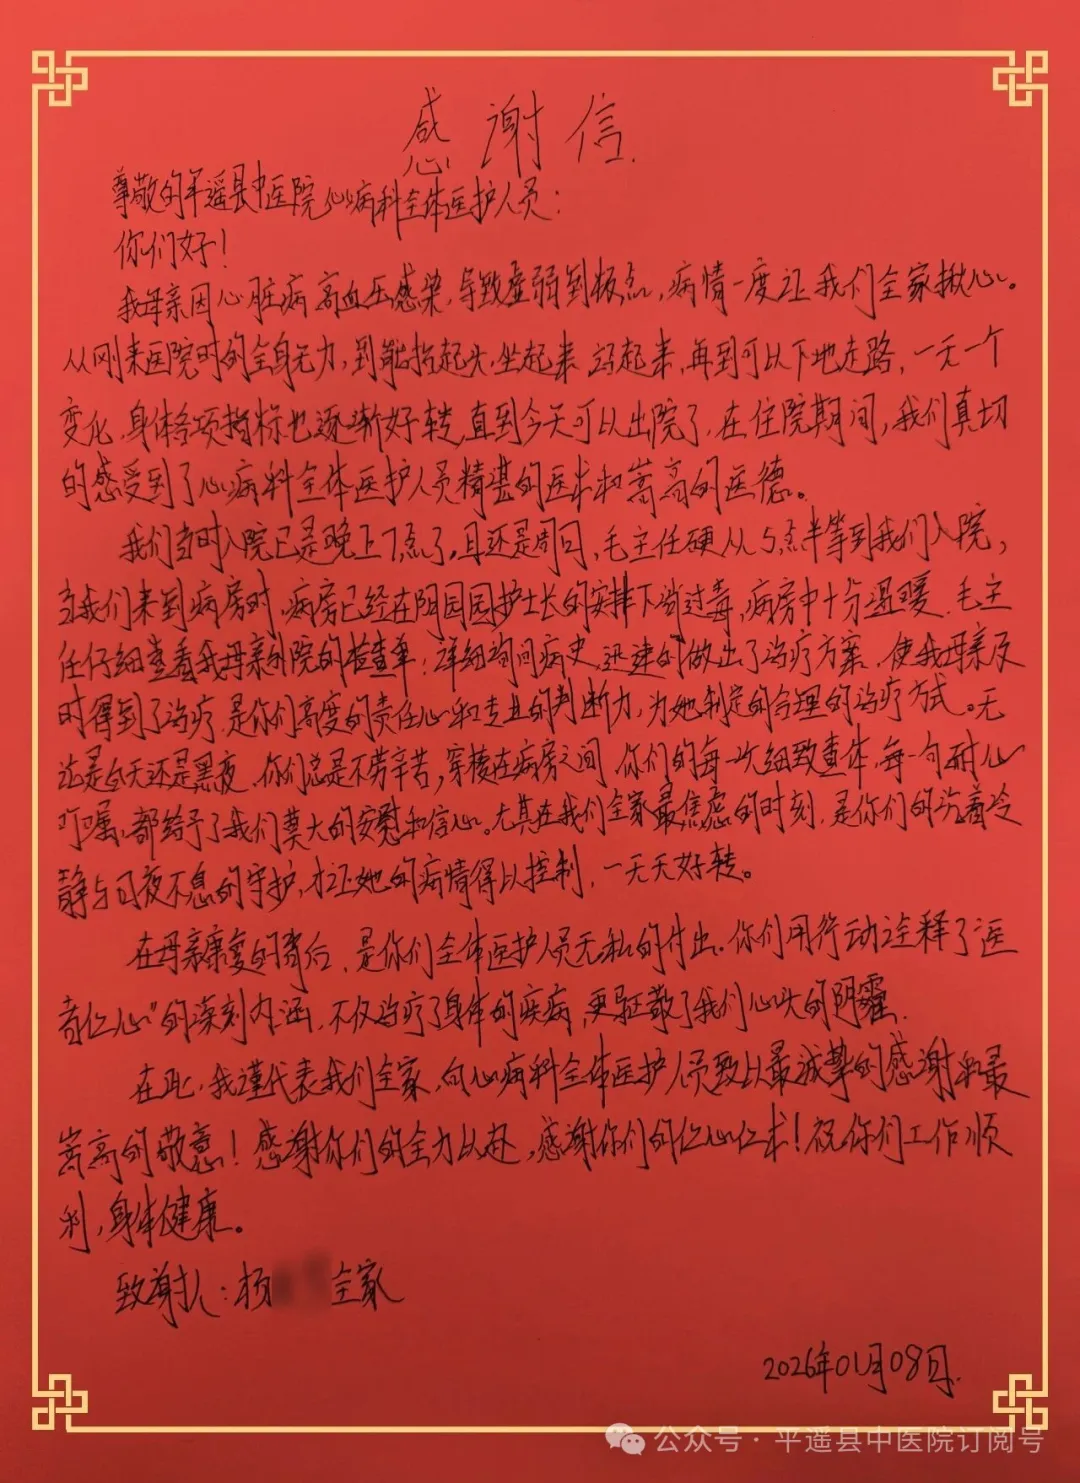 感谢信
尊敬的平遥县中医院心病科全体医护人员：
你们好！
我母亲因心脏病高血压感染，导致虚弱到极点，病情一度让我们全家揪心。
从刚来医院时的全身无力，到能抬起头，坐起来 站起来，再到可以下地走路，一天一个
变化，身体各项指标也逐渐好转，直到今天可以出院了，在住院期间，我们真切
的感受到了心病科全体医护人员精湛的医术和崇高的医德。
我们当时入院已是晚上7点了，且还是周日，毛主任硬从5点半等到我们入院，
当我们来到病房时，病房已经在阴园园护士长的安排下消过毒，病房中十分温暖，毛主
任仔细查看我母亲外院的检查单，详细询问病史，迅速的做出了治疗方案，使我母亲及
时得到了治疗，是你们高度的责任心和专业的判断力，为她制定的合理的治疗方式。无
论是白天还是黑夜，你们总是不劳辛苦，穿梭在病房之间，你们的每一次细致查体，每一句耐心
叮嘱，都给予了我们莫大的安慰和信心。尤其在我们全家最焦虑的时刻，是你们的沉着冷
静与日夜不息的守护，才让她的病情得以控制，一天天好转。
在母亲康复的背后，是你们全体医护人员无私的付出。你们用行动诠释了“医
者仁心”的深刻内涵，不仅治疗了身体的疾病，更驱散了我们心头的阴霾。
在此，我谨代表我们全家，向心病科全体医护人员致以最诚挚的感谢和最
崇高的敬意！感谢你们的全力以赴，感谢你们的仁心仁术！祝你们工作顺
利，身体健康。
致谢人：杨 全家
2026年01月08日.
公众号·平遥县中医院订阅号